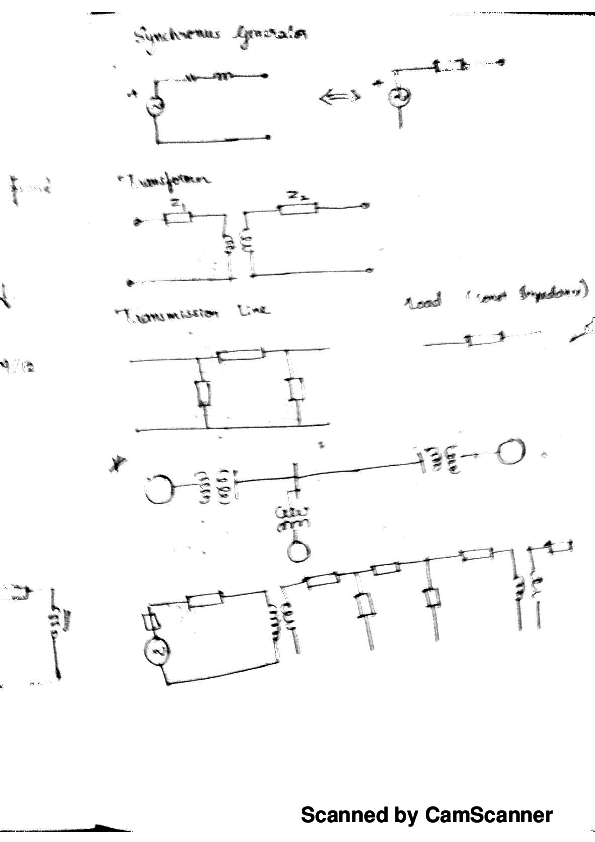 Synchronus Generator
Transformer
Z1
Z2
Transmission Line
Load (Const Impedance)
Scanned by CamScanner